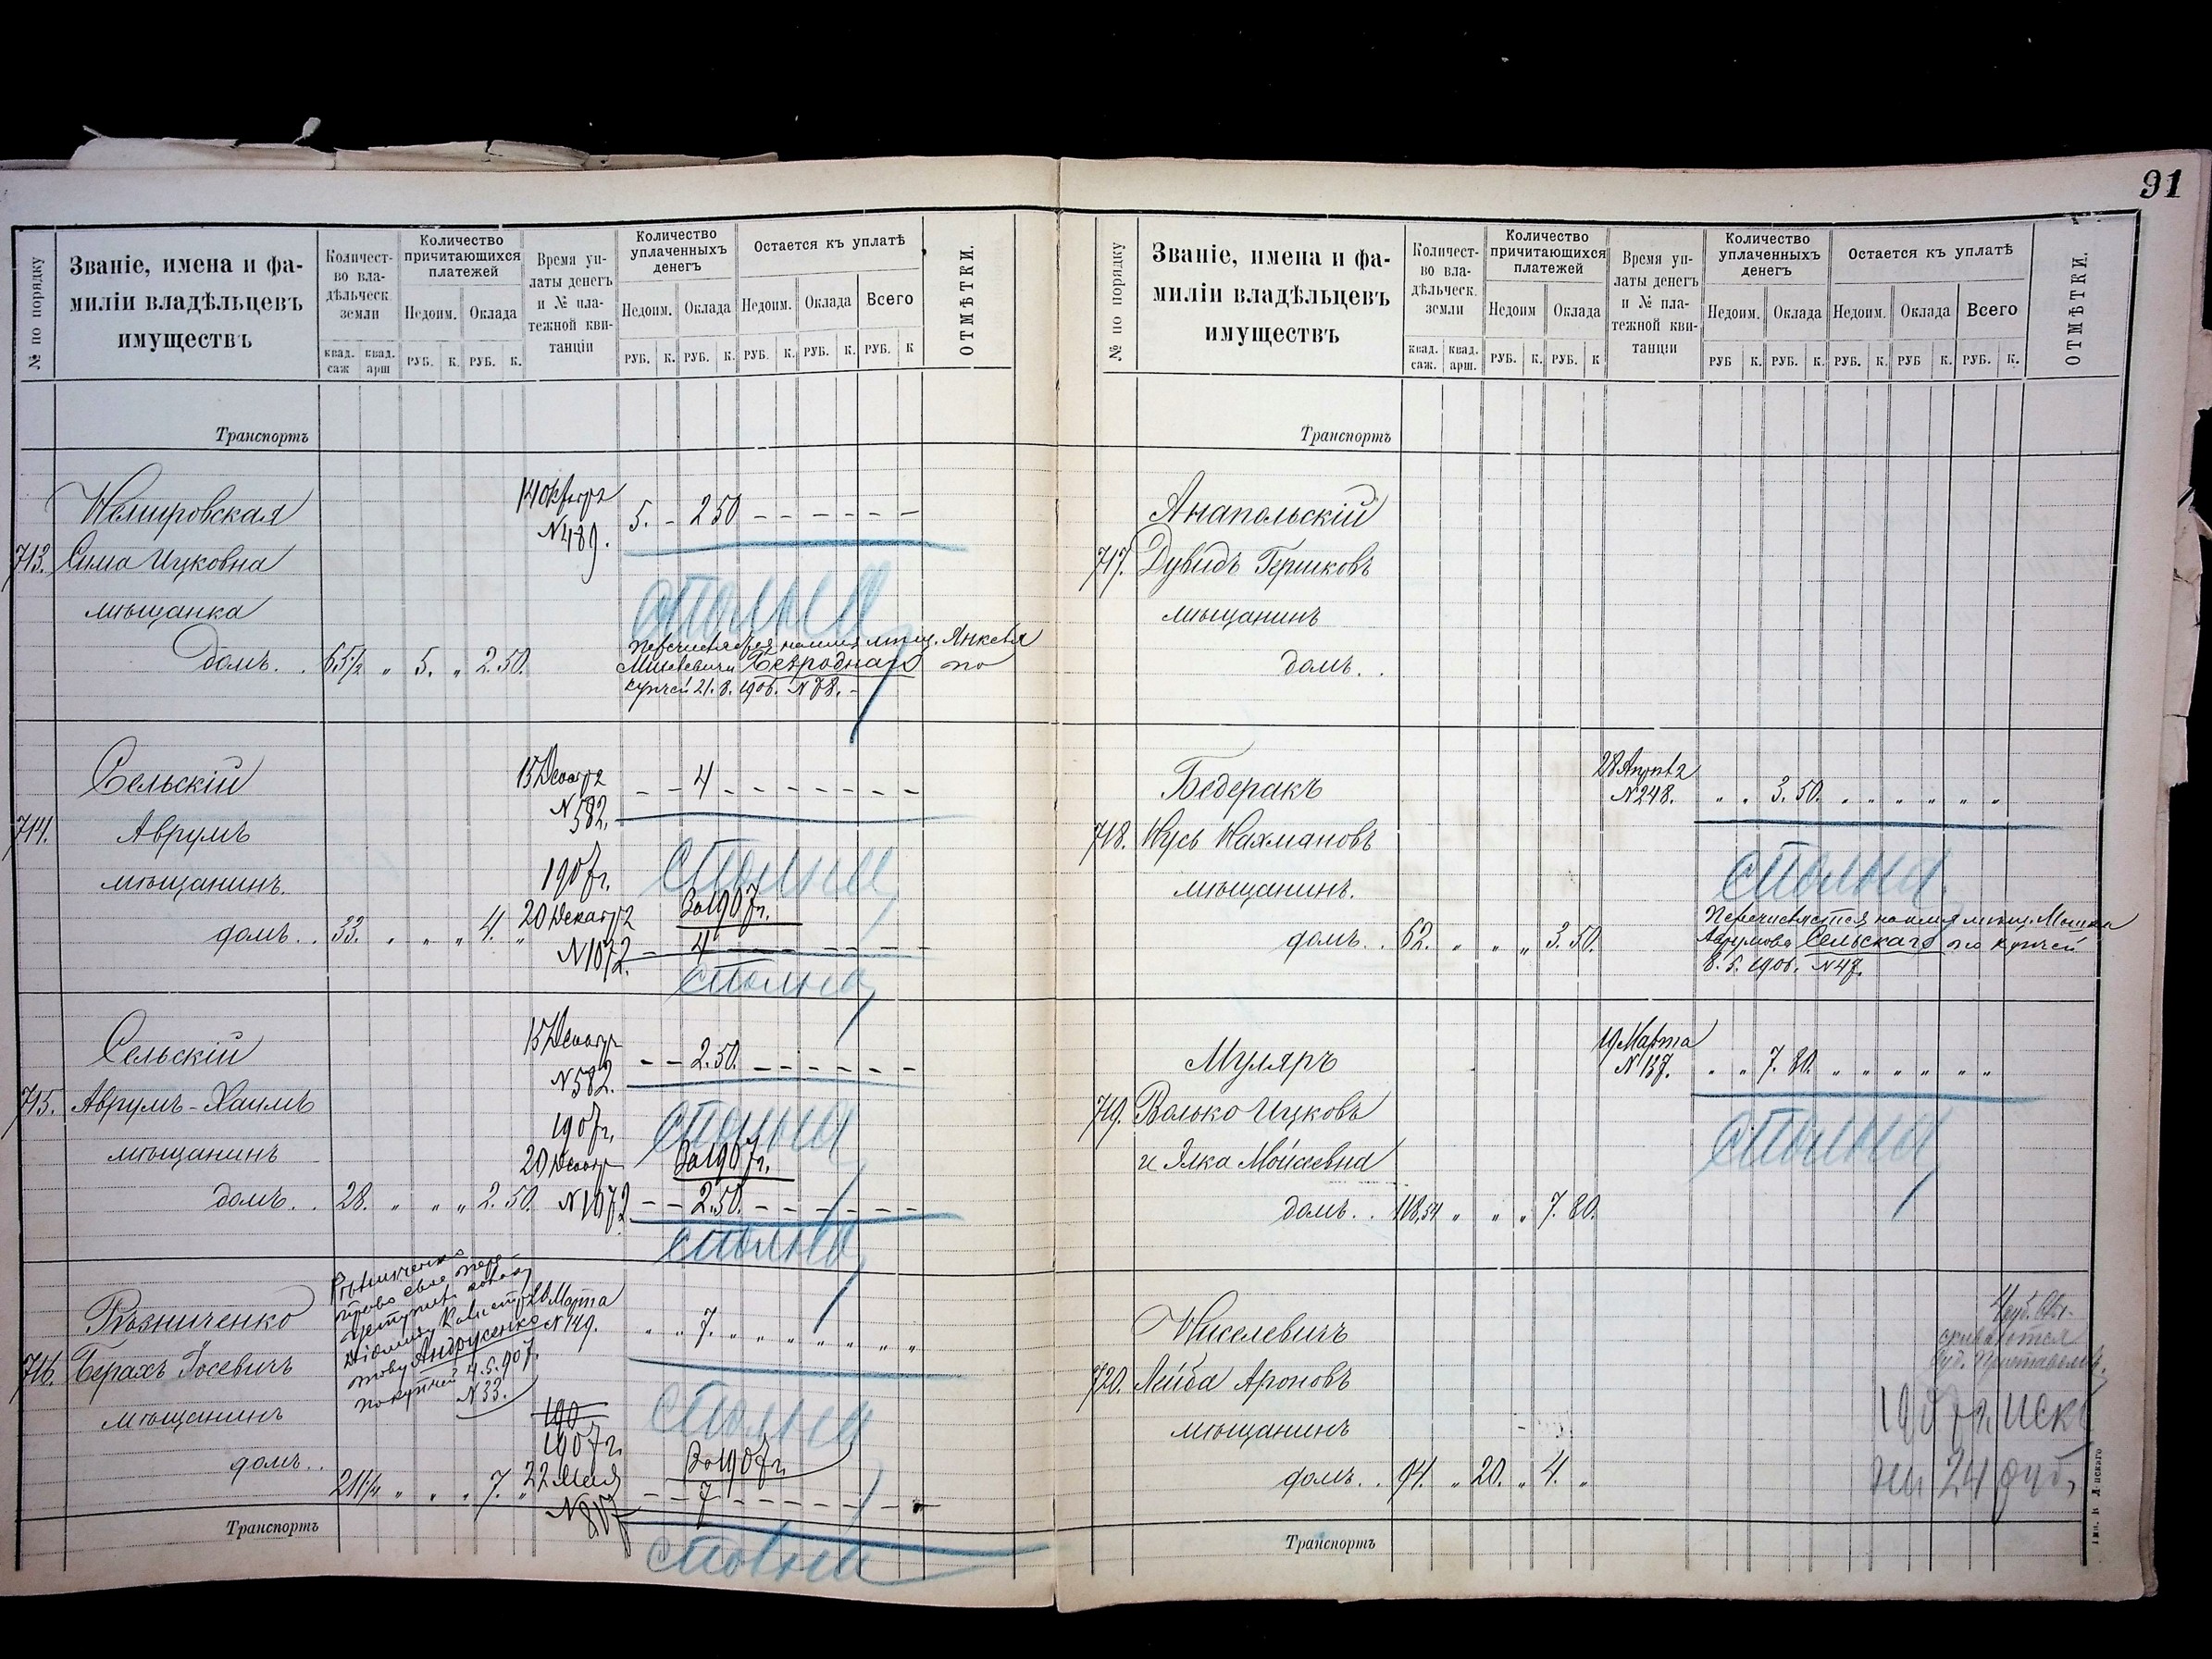 91
№ по порядку
Званіе, имена и фа-
миліи владѣльцевъ
имуществъ
Количест-
во вла-
дѣльческ.
земли
квад. саж
квад. арш
Количество
причитающихся
платежей
Недоим.
Оклада
РУБ. К. РУБ. К.
Время уп-
латы денегъ
и № пла-
тежной кви-
танціи
Количество
уплаченныхъ
денегъ
Недоим.
Оклада
РУБ. К. РУБ. К.
Остается къ уплатѣ
Недоим.
Оклада
Всего
РУБ. К. РУБ. К. РУБ. К
ОТМѢТКИ.
Транспортъ
Немировская
713. Сима Ицковна
мѣщанка
домъ . . 65½ " 5. " 2.50.
14 Октября
N489.
5. - 2 50 - - - - - -
сполна
Перечисляется на имя мѣщ. Янкеля
Безроднаго по
купчей 21.8.1906. N78.
Сельскій
714. Аврумъ
мѣщанинъ.
домъ . . 33. " " " 4. "
15 Декабря
N582.
- - 4 - - - - - - -
сполна
1907 г.
20 Декабря
N1072.
За 1907 г.
- - 4 - - - - - - -
сполна
Сельскій
715. Аврумъ-Хаимъ
мѣщанинъ
домъ . . 28. " " " 2.50.
15 Декабр
N582.
- - 2.50. - - - - - -
сполна
1907 г.
20 Декабр
N1072
За 1907 г.
- - 2.50. - - - - - -
сполна
Рѣзниченко
716. Берахъ Іосевичъ
мѣщанинъ
домъ . .
211¼ " " " 7. "
Рѣзниченко
право свое
Андрусенко
по купчей 4.5.907.
N33.
20 Марта
N149.
" " 7. " " " " " " "
сполна
190
1907 г.
22 Мая
N807
За 1907 г.
- - 7 - - - - - - -
сполна
Транспортъ
№ по порядку
Званіе, имена и фа-
миліи владѣльцевъ
имуществъ
Количест-
во вла-
дѣльческ.
земли
квад. саж.
квад. арш.
Количество
причитающихся
платежей
Недоим
Оклада
РУБ. К. РУБ. К
Время уп-
латы денегъ
и № пла-
тежной кви-
танціи
Количество
уплаченныхъ
денегъ
Недоим.
Оклада
РУБ К. РУБ. К.
Остается къ уплатѣ
Недоим.
Оклада
Всего
РУБ. К. РУБ К. РУБ. К.
ОТМѢТКИ.
Транспортъ
Анапольскій
717. Дувидъ Гершковъ
мѣщанинъ
домъ . .
Бедеракъ
718. Нусь Нахмановъ
мѣщанинъ.
домъ . . 62. " " " 3.50.
28 Апрѣля
N248.
" " 3.50. " " " " " "
сполна
Перечисляется на имя мѣщ. Мошка
Аврумова Сельскаго по купчей
8.5.1906. N47.
Муляръ
719. Волько Ицковъ
и Элка Мойсеевна
домъ . . 118,54 " " " 7.80.
19 Марта
N137.
" " 7.80. " " " " " "
сполна
Киселевичъ
720. Лейба Ароновъ
мѣщанинъ
домъ . . 94. " 20. " 4. "
1907 г. иск
24 руб,
Транспортъ